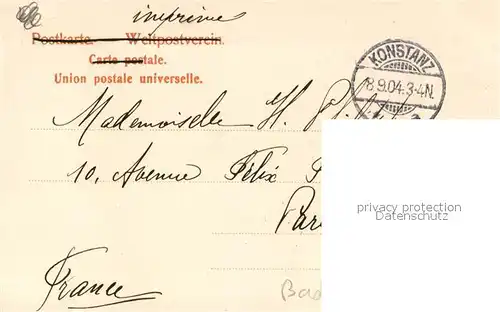 imprime
Postkarte. — Weltpostverein.
Carte postale.
Union postale universelle.
KONSTANZ
8.9.04.3-4N.
Mademoiselle H.
10, Avenue Félix
France
privacy protection
Datenschutz